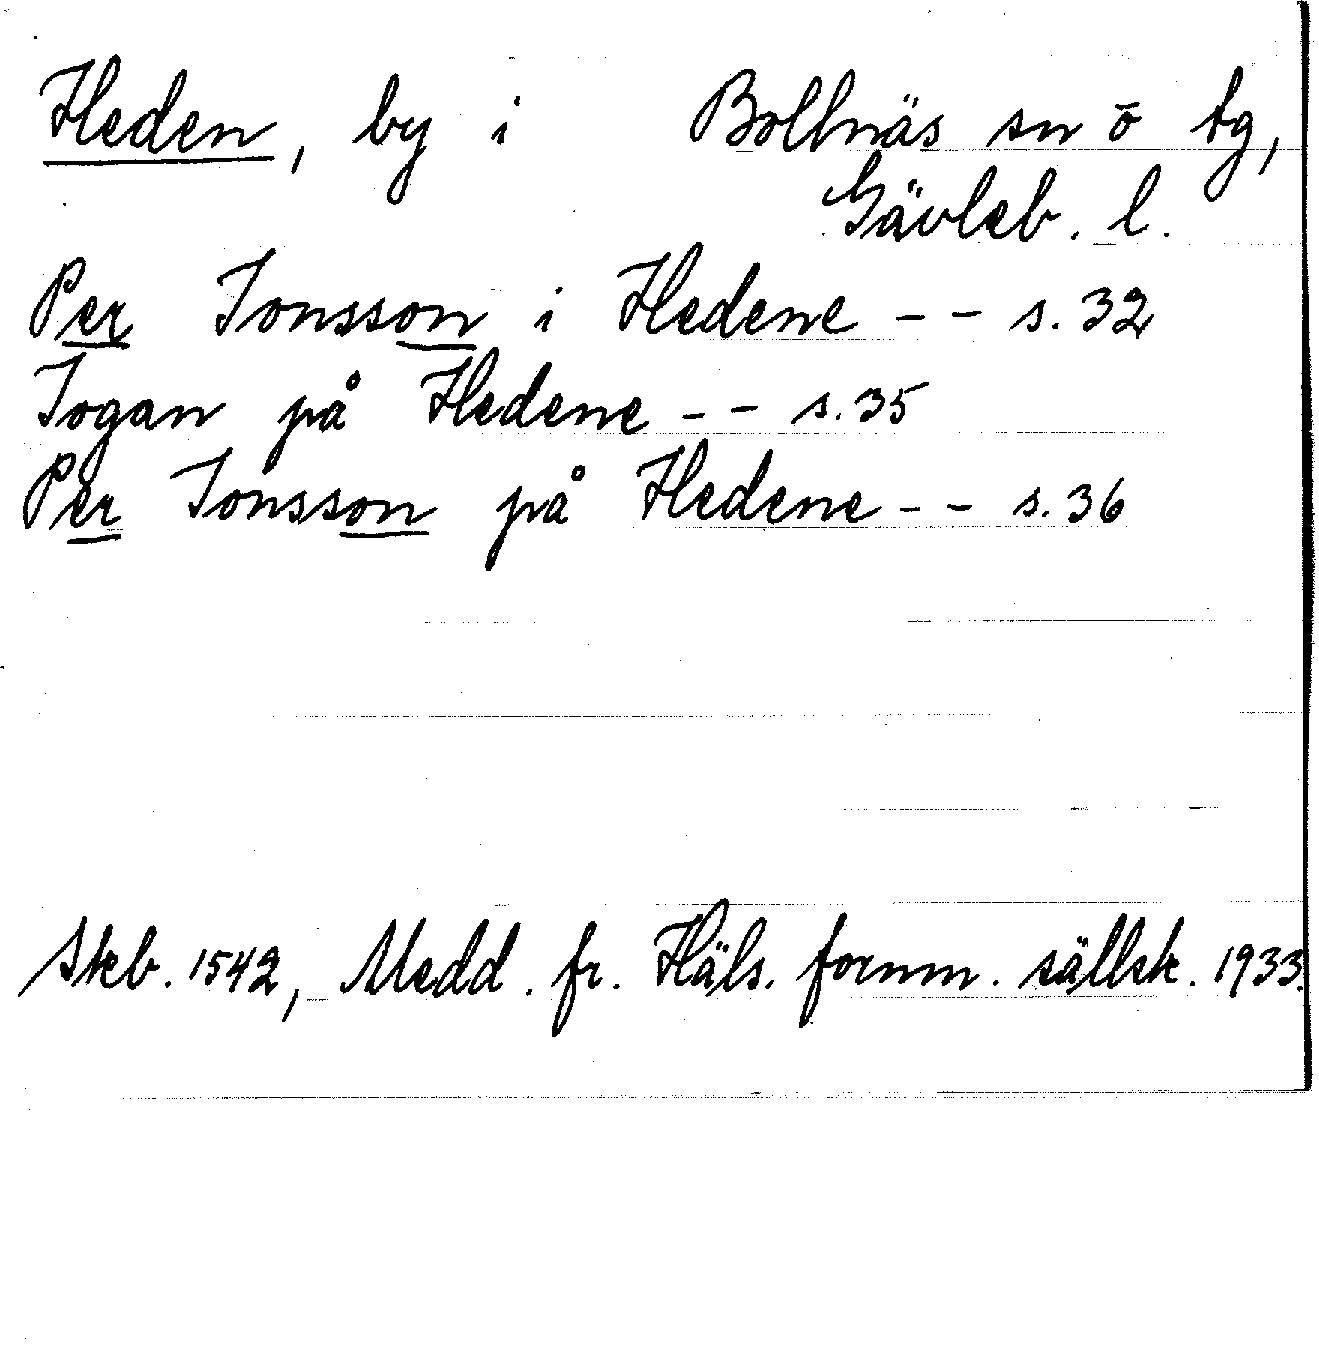 Heden, by i Bollnäs sn ö tg,
Gävleb. l.
Per Jonsson i Hedene -- s. 32
Jogan på Hedene -- s. 35
Per Jonsson på Hedene -- s. 36
Skb. 1542, Medd. fr. Häls. fornm. sällsk. 1933.